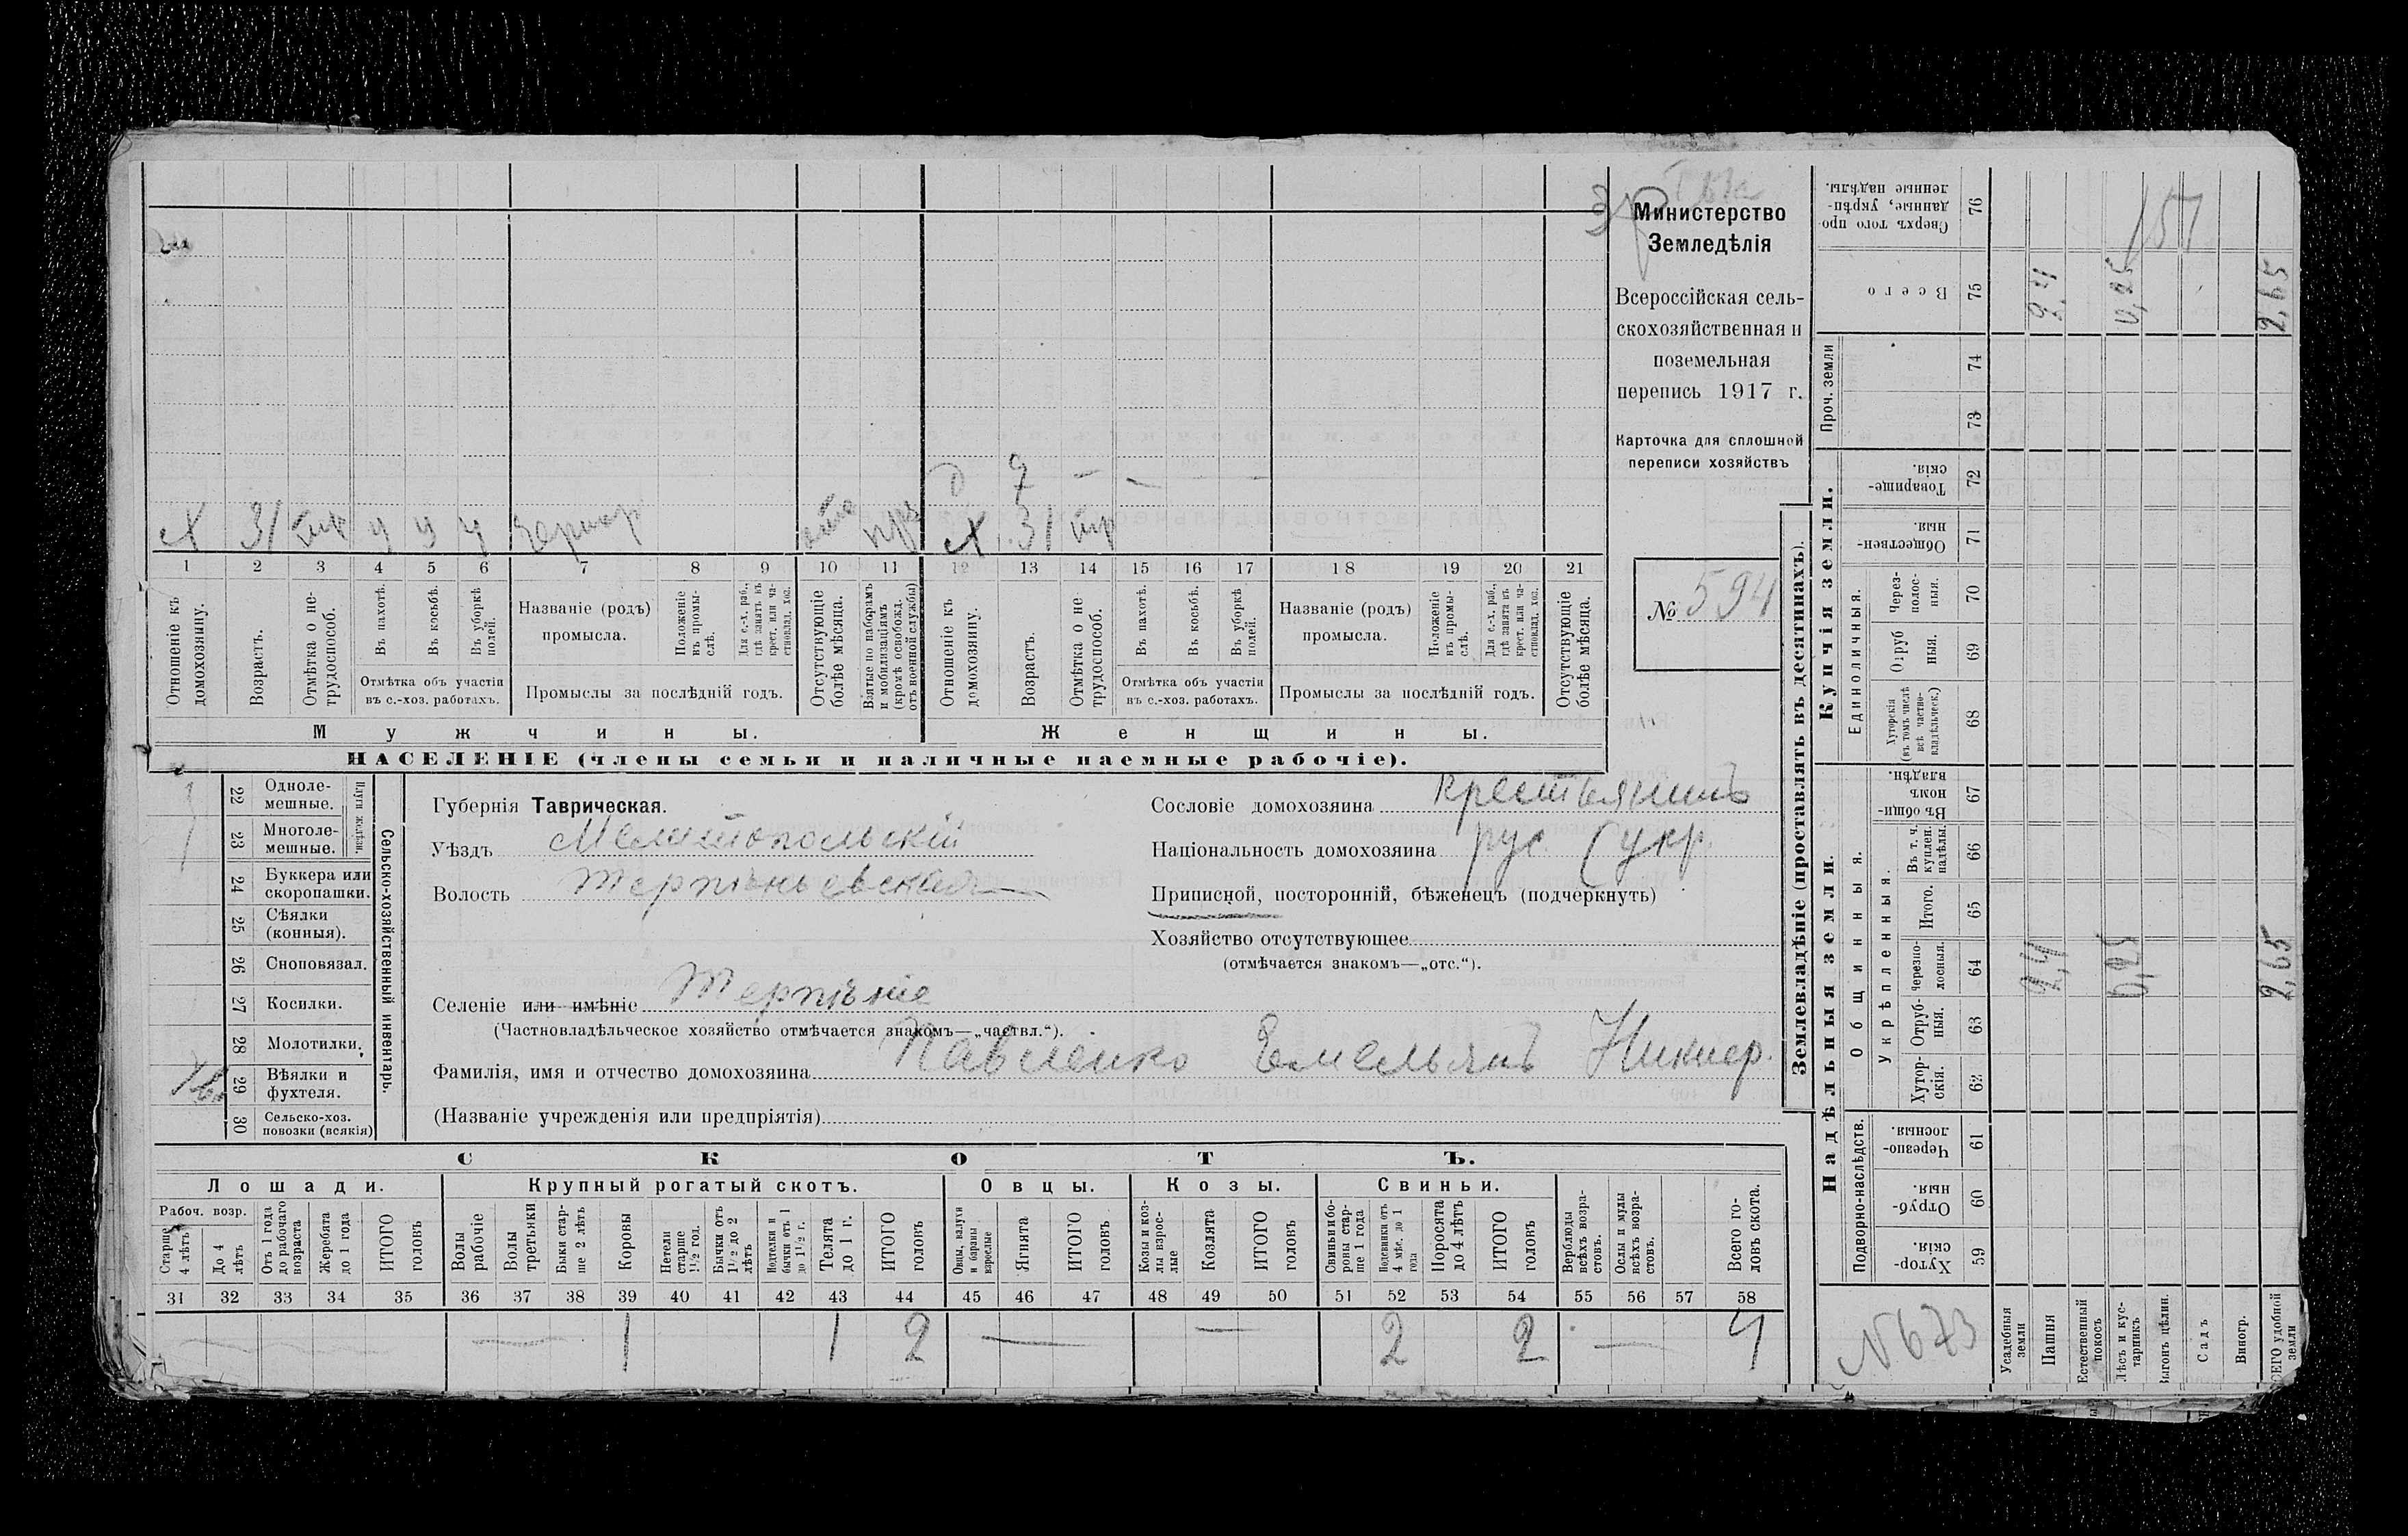 Министерство
Земледѣлія
Всероссійская сель-
скохозяйственная и
поземельная
перепись 1917 г.
Карточка для сплошной
переписи хозяйствъ
№ 594
Д 9 — — — —
Х 31 у у у Х 31 тр
1 2 3 4 5 6 7 8 9 10 11 12 13 14 15 16 17 18 19 20 21
Отношеніе къ домохозяину.
Возрастъ.
Отмѣтка о не-трудоспособ.
Въ пахотѣ.
Въ косьбѣ.
Въ уборкѣ полей.
Отмѣтка объ участіи въ с.-хоз. работахъ.
Названіе (родъ) промысла.
Положеніе въ промы-слѣ.
Для с.-х. раб., гдѣ занятъ въ крест. или ча-стновлад. хоз.
Промыслы за послѣдній годъ.
Отсутствующіе болѣе мѣсяца.
Взятые по наборамъ и мобилизаціямъ (кромѣ освобожд. отъ военной службы)
Отношеніе къ домохозяину.
Возрастъ.
Отмѣтка о не трудоспособ.
Въ пахотѣ.
Въ косьбѣ.
Въ уборкѣ полей.
Отмѣтка объ участіи въ с.-хоз. работахъ.
Названіе (родъ) промысла.
Положеніе въ промы-слѣ.
Для с.-х. раб., гдѣ занята въ крест. или ча-стновлад. хоз.
Промыслы за послѣдній годъ.
Отсутствующіе болѣе мѣсяца.
Мужчины. Женщины.
НАСЕЛЕНІЕ (члены семьи и наличные наемные рабочіе).
22 Одноле-мешные.
23 Многоле-мешные.
Плуги желѣзн.
24 Буккера или скоропашки.
25 Сѣялки (конныя).
26 Сноповязал.
27 Косилки.
28 Молотилки.
29 Вѣялки и фухтеля.
30 Сельско-хоз. повозки (всякія)
Сельско-хозяйственный инвентарь.
Губернія Таврическая.
Уѣздъ Мелитопольскій
Волость Терпѣньевская
Селеніе или имѣніе Терпѣніе
(Частновладѣльческое хозяйство отмѣчается знакомъ—„частвл.“).
Фамилія, имя и отчество домохозяина Павленко Емельянъ
(Названіе учрежденія или предпріятія)
Сословіе домохозяина крестьянинъ
Національность домохозяина рус (укр.
Приписной, посторонній, бѣженецъ (подчеркнуть)
Хозяйство отсутствующее
(отмѣчается знакомъ—„отс.“).
СКОТЪ.
Лошади. Крупный рогатый скотъ. Овцы. Козы. Свиньи.
Рабоч. возр.
Старше 4 лѣтъ
До 4 лѣтъ
Отъ 1 года до рабочаго возраста
Жеребята до 1 года
ИТОГО головъ
Волы рабочіе
Волы третьяки
Быки стар-ше 2 лѣтъ
Коровы
Нетели старше 1½ год.
Бычки отъ 1½ до 2 лѣтъ
Подтелки и бычки отъ 1 до 1½ г.
Телята до 1 г.
ИТОГО головъ
Овцы, валухи и бараны взрослые
Ягнята
ИТОГО головъ
Козы и коз-лы взрос-лые
Козлята
ИТОГО головъ
Свиньи и бо-ровы стар-ше 1 года
Подсвинки отъ 4 мѣс. до 1 года
Поросята до 4 лѣтъ
ИТОГО головъ
Верблюды всѣхъ возра-стовъ.
Ослы и мулы всѣхъ возра-стовъ.
Всего го-ловъ скота.
31 32 33 34 35 36 37 38 39 40 41 42 43 44 45 46 47 48 49 50 51 52 53 54 55 56 57 58
— — 1 1 2 — — 2 2 — 4
Землевладѣніе (проставлять въ десятинахъ).
Купчія земли.
Проч. земли
Единоличныя.
Сверхъ того про-данные, укрѣп-ленные надѣлы. 76
Всего 75
74
73
Товарище-скія. 72
Обществен-ныя. 71
Черезполос-ныя. 70
Отруб ныя. 69
Хуторскія (въ томъ числѣ всѣ частно-владѣльческ.) 68
Надѣльныя земли.
Общинныя.
Укрѣпленныя.
Въ общи-номъ владѣн. 67
Въ т. ч. куплен. надѣлы. 66
Итого. 65
Черезпо-лосныя. 64
Отруб-ныя. 63
Хутор-скія. 62
Подворно-наслѣдств.
Черезпо-лосныя. 61
Отруб-ныя. 60
Хутор-скія. 59
2,4 0,25 2,65
2,4 0,25 2,65
N 673
Усадебныя земли
Пашня
Естественный покосъ
Лѣсъ и кус-тарникъ
Выгонъ цѣлин.
Садъ
Виногр.
ВСЕГО удобной земли